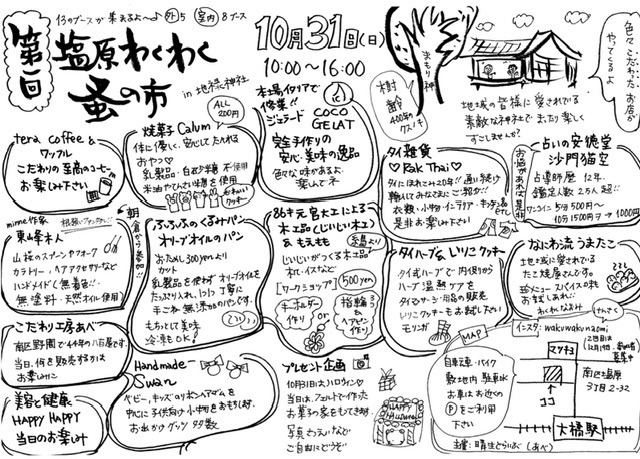 13のブースが集まるよ〜♪ 外5 室内8ブース
第一回
塩原わくわく
蚤の市
in 地禄神社
10月31日(日)
10:00〜16:00
まもり神
樹齢
400年の
クスノキ
色々こだわったお店が
やってくるよ
地域の皆様に愛されている
素敵な神社で一日楽しく
すごしませんか?
tera coffee &
ワッフル
こだわりの至高のコーヒー
お楽しみ下さい
焼菓子 Calum
ALL
200円
体に優しく、安心して食べれる
おやつ♡
乳製品・白砂糖 不使用
米油・てんさい糖を使用
かわいい
クッキー
本場イタリアで
修業!!
ジェラード COCO
GELAT
完全手作りの
安心・美味の逸品
色々な味があるよ
楽しんでネ
タイ雑貨
♡ Rak Thai ♡
タイにほれこみ20年!! 通い続け
輸入してみなさまにご紹介!!
衣類・小物・インテリア・キッチン品etc
是非お楽しみ下さい
占いの安徳堂
沙門猫空
お悩みがあれば是非
占導師歴 12年
鑑定人数 2万人超!!
ワンコイン 5分500円〜
10分1500円→1000円
mime作家
東山本人
根強いファン
山桜のスプーンやフォーク
カラトリー、ヘアアクセサリーなど
ハンドメイド (無着色!!)
無塗料・天然オイル使用
朝倉から参加
ふふふのくるみパン
オリーブオイルのパン
おためし300yenより
カット
乳製品を使わずオリーブオイルを
たっぷり入れ、1つ1つ丁寧に
手ごね 無添加のパンです。
もちっとして美味
冷凍もOK!
86才元宮大工による
木工品(じいじい木工)
&もえもえ
糸島より
じいじいがつくる木工品
机・イスなど
[ワークショップ] 500yen
キーホルダー
作り or 指輪&
ヘアピン
作り
タイハーブ&いりこクッキー
タイ式ハーブで内側から
ハーブ温熱ケアを
タイマッサージ・用品の販売
いりこクッキーもお試し下さい
モリンガ
なにわ流うまたこ
地域に愛されている
たこ焼屋さんです。
珍メニュー スパイスの利
お試しあれ!!
こだわり工房あべ
南区野間で44年のハム屋です。
当日、何を販売するかは
お楽しみに
美容と健康
HAPPY HAPPY
当日のお楽しみ
Handmade-
Swan
ベビー、キッズのリボンヘアゴムを
中心に子供向け小物をおもちします。
お出かけグッズ 多数
プレゼント企画
10月31日はハロウィン♡
当日は、フェルトで作った
お菓子の家をもってきます。
写真さつえいなど
ご自由にどうぞ
HAPPY
Halloween
MAP
自転車・バイク
敷地内 駐車OK
お車はお近くの
Ⓟをご利用
下さい
けんさく
インスタ:wakuwakunaomi
2回目は
12月19日
マツキヨ
南区塩原
3丁目2-32
ココ
大橋駅
主催:晴生どらいぶ(あべ)